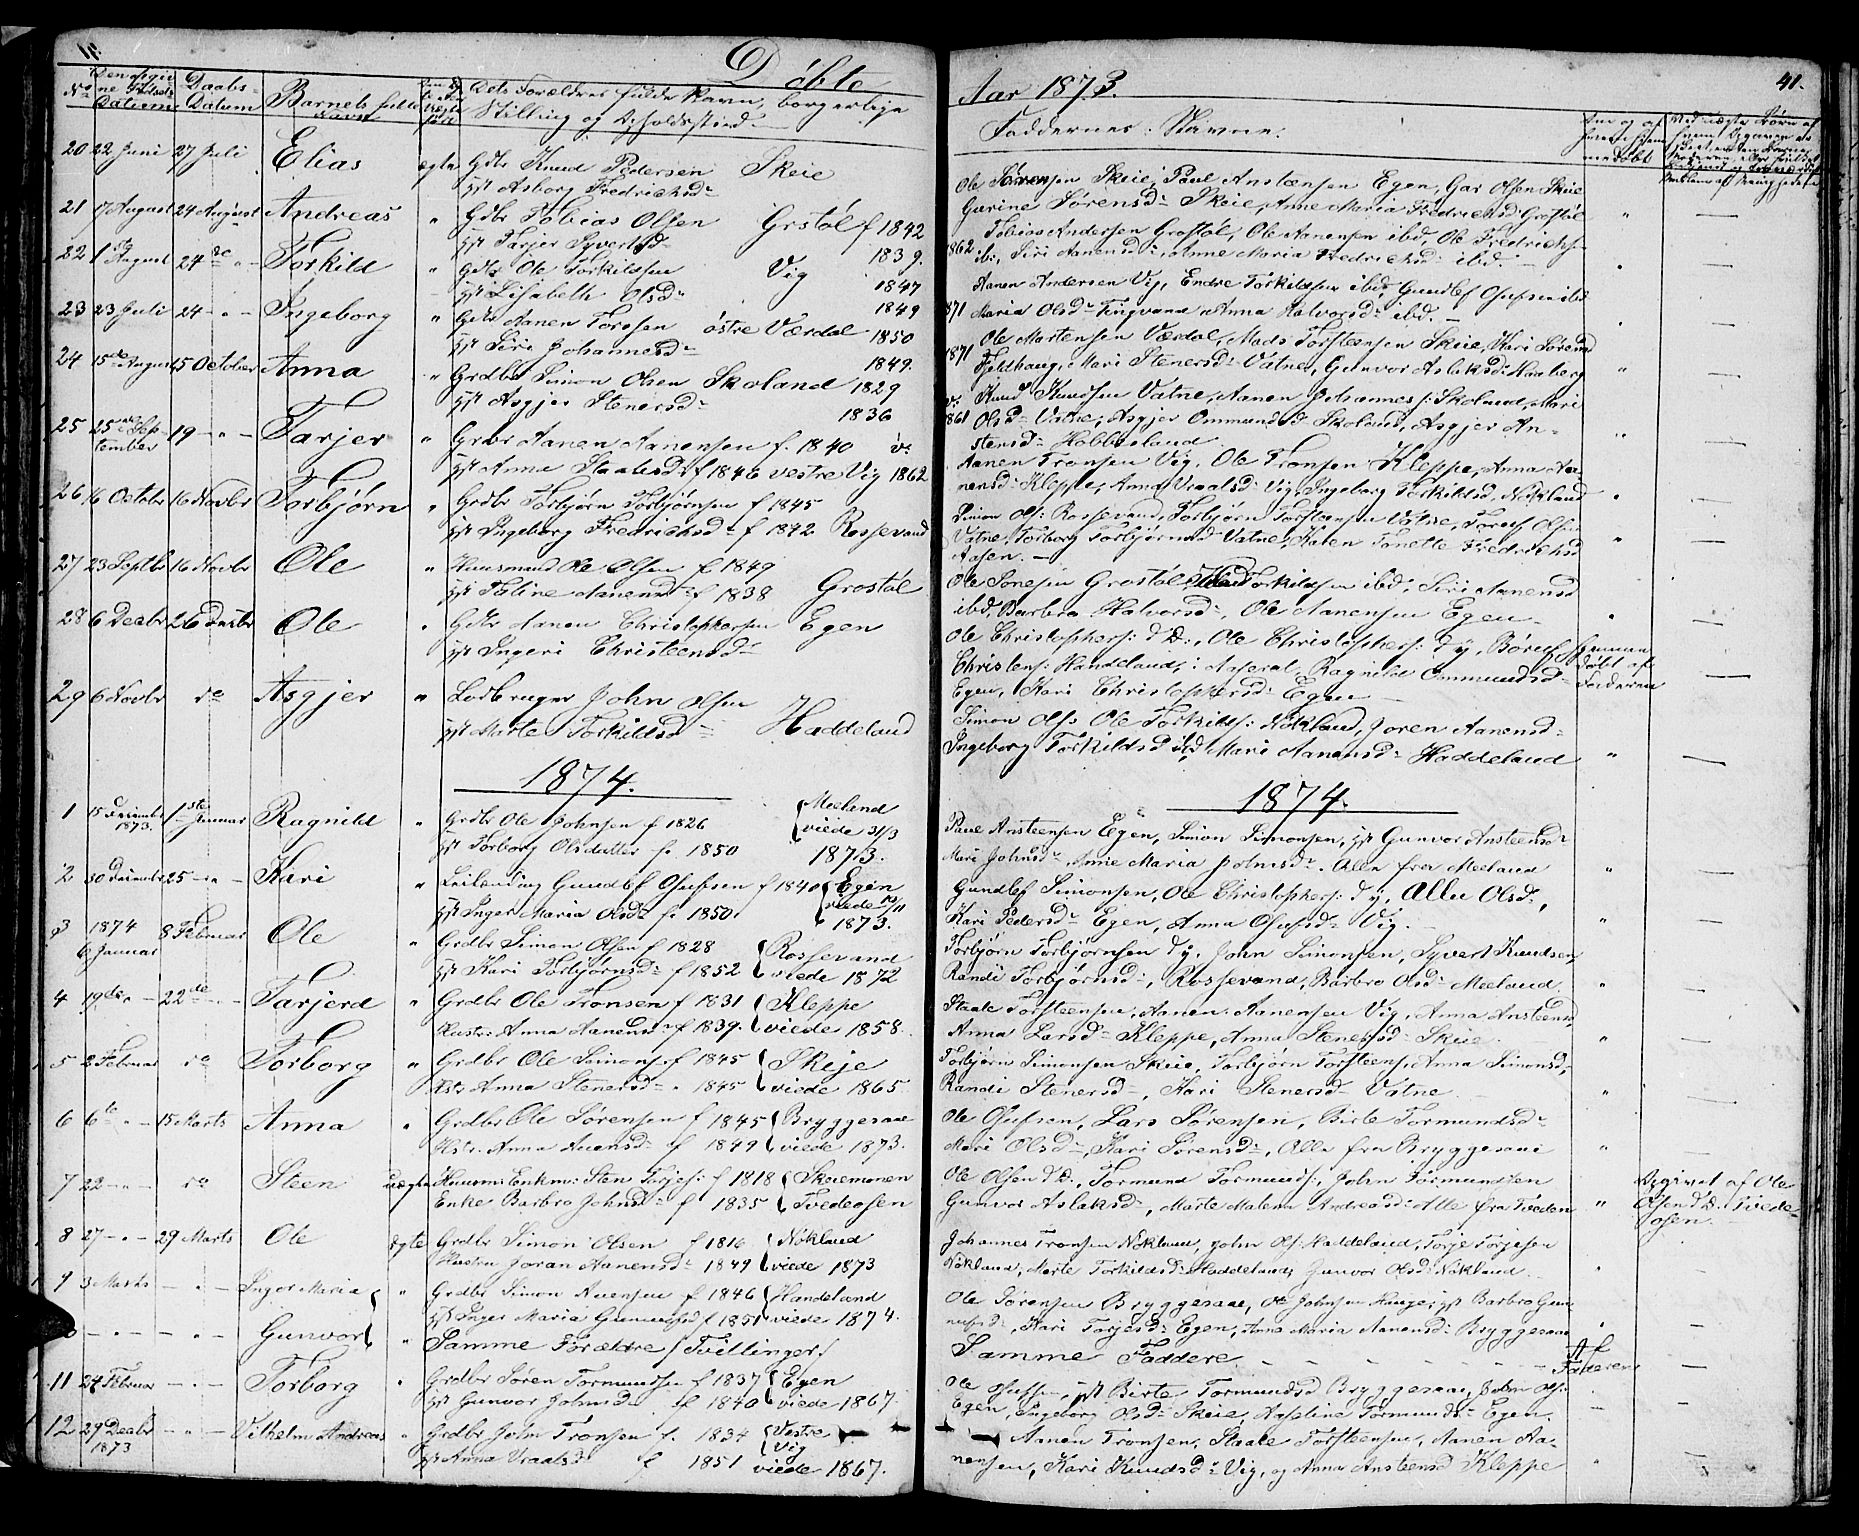 Döbte
Aar 1873.
41.
No
Daabs-
Datum
Barnets fulde
Navn
Dets Forældres fulde Navn, borgerlige
Stilling og Opholdssted.
Faddernes Navne.
20 22 Juni 27 Juli Elias ægte Gdbr Knud Pedersen Skeie
hst Asborg Fredrichsd-
Ole Sörensen Skeie, Paul Anstensen Egen, Gar Olsen Skeie
Gurine Sörensd- Skeie, Anne Maria Fredrichsd Grostöl "
21 17 August 24 August Andreas " Gdbr Tobias Olsen Grstöl f 1842
hst Tarjer Syvertsd- 1839.
Tobias Andersen Grostöl, Ole Aanensen ibd, Ole Fredrichs-
1862 ib:, Siri Aanensd-, Anne Maria Fredrichsd ibd. "
22 1 August 24 de " Torkild " Gdbr Ole Torkildsen Vig 1847
hst Lisabeth Olsd- 1849
Aanen Andersen Vig, Endre Torkildsen ibd, Gundlef Osufsen ibd
1871 Maria Olsd- Tingvand, Anna Halvorsd- ibd.
23 23 Juli 24 - " - Ingeborg " Gdbr Aanen Torssen östre Værdal 1850
hst Siri Johannesd- 1849.
Ole Mortensen Værdal, Mads Torsteensen Skeie, Kari Sörensd
1871 Fjeldhaug, Mari Stenersd- Vatne, Gunvor Aslaksd- Haaberg "
24 15 de August 5 October Anna " Grdbr Simon Olsen Skoland 1829
hst Asgjer Stenersd- 1836
Knud Knudsen Vatne, Aanen Johannes: Skoland, Mari
1861 Olsd- Vatne, Asgjer Ommundsd Skoland, Asgjer An-
stensd- Hobbesland "
25 25 September 19 - " - Tarjer " Grbr Aanen Aanensen f. 1840 v:
hst Anna Staalesd- f 1846 vestre Vig 1862
Aanen Tronsen Vig. Ole Tronsen Kleppe, Anna Aa-
nensd- Kleppe, Anna Vraalsd- Vig, Ingeborg Torkildsd. Nökland "
26 16 Octobr 16 Novbr Torbjörn " Grdbr Torbjörn Torbjörnsen f 1845
hst Ingeborg Fredrichsd- f 1842 Rossevand
Simon Ols: Rossevand, Torbjörn Torsteensen Vatne, Torers Olsen
Vatne, Torborg Torbjörnsd Vatne, Karen Tonette Fredrichsd
Aasen. "
27 23 Septbr 16 Novbr Ole " Huusmand Ole Olsen f 1849
hst Taline Aanensd- f 1838 Grostöl
Ole Jonesen Grostöl, Torkildsen ibd, Siri Aanensd
ibd, Barbro Halvorsd-, Ole Aanensen Egen.
28 6 Decbr 26 Decbr Ole " Gdbr Aanen Christophersen Egen
hst Ingeri Christensd-
Ole Christophers: d Æ:, Ole Christophers: d y, Börufs
Christens: Handeland i Aaseral, Ragnilde Ommundsd-
Egen, Kari Christophersd- Egen
hjemme
döbt af
Faderen
29 6 Novbr do Asgjer " Lodbruger John Olsen
hst Marte Torkildsd- Haddeland
Simon Ols: Ole Torkilds: Nökland, Joren Aanensd-
Ingeborg Torkildsd ibd, Mari Aanensd- Haddeland "
1874.
1874.
1 15 Decembr 1873. 1ste Januar Ragnild " Grdbr Ole Johnsen f 1826 Meeland
hst Torborg Olsdatter f. 1850 viede 31/3 1873.
Paul Ansteensen Egen, Simon Simonsen, hst Gunvor Ansteensd-
Mari Johnsd-, Anne Maria Johnsd-. Alle fra Meeland "
2 30 Decembr 25 - " - Kari " Leilænding Gundlef Osufsen f 1840 Egen
hst Inger Maria Olsd- f. 1850. viede 10/11 1873.
Gundlef Simonsen, Ole Christophers: d y, Allu Olsd-,
Kari Pedersd- Egen, Anna Osufsd- Vig. "
3 1874 6 Januar 8 Februar Ole " Grdbr Simon Olsen f 1828 Rossevand
hst Kari Torbjörnsd- f 1852 viede 1872
Torbjörn Torbjörnsen d y, John Simonsen, Syvert Knudsen,
Randi Torbjörnsd-, Rossevand, Barbro Olsd- Meeland. "
4 19 de " - 22 de - " - Tarjerd " Grdbr Ole Tronsen f 1831 Kleppe
Hustr: Anna Aanensd- f 1839. viede 1858.
Staale Torsteensen, Aanen Aanensen Vig, Anna Ansteensd,
Anna Larsd- Kleppe, Anna Stenersd- Skeie. "
5 2 Februar do Torborg " Grdbr Ole Simons: f 1845 Skeje
Hstr: Anna Stenersd- " 1845 viede 1865.
Torbjörn Simonsen Skeie, Torbjörn Torsteens:, Anna Simonsd,
Randi Stenersd-, Kari Stenersd- Vatne. "
6 6te " - 15 Marts Anna " Grdbr Ole Sörensen f 1845 Bryggesaae
Hstr: Anna Auensd- f 1849 viede 1873.
Ole Osufsen, Lars Sörensen, Birte Tormundsd-
Mari Olsd-, Kari Sörensd-, Alle fra Bryggesaae "
7 22 - " - do Steen uægte Huusm: Enkm: Sten Torjes: f 1818 Skaremonen
Enke Barbro Johnsd- f 1835 Tvedeosen
Ole Olsen d Æ., Tormund Tormunds:, John Tormundsen
Gunvor Aslaksd-, Marte Malene Andreasd- Alle fra Tveden "
Opgivet af Ole
Olsen d. Æ. Tvede-
osen.
8 27 - " - 29 Marts Ole ægte Grdbr Simon Olsen f 1816 Nökland
Hustru Joran Aanensd- 1849 viede 1873
Johannes Tronsen Nökland, John Ols: Haddeland, Torje Torjesen
Nökland, Marte Torkildsd- Haddeland, Gunvor Olsd- Nökland "
9 3 Marts - " - Inger Maria " Grdbr Simon Auensen f 1846 Handeland
hst Inger Maria Gunnufsd f 1851 viede 1874.
Ole Sörensen Bryggesaae, Ole Johnsen Hauge, hst Barbro Gun-
nufsd-, Kari Torjesd- Egen, Anna Maria Aanensd- Bryggesaae "
- " - - " - Gunvor " Samme Forældre (Tvillinger)
Samme Faddere
Af
Faderen
11 24 Februar - " - Torborg " Grdbr Sören Tormundsen f 1837 Egen
hst Gunvor Johnsd- f 1840 viede 1867.
Ole Osufsen, hst Birte Tormundsd Bryggesaae, John Ols:
Egen, Ingeborg Olsd- Skeie, Asseline Tormundsd- Egen.
12 29 Decbr 1873 - " - Vilhelm Andreas " Grdbr John Tronsen f. 1834 Vestre Vig
hst Anna Vraalsd f 1851 viede 1867.
Aanen Tronsen, Staale Torsteensen, Aanen Aa-
nensen, Kari Knudsd- Vig, og Anna Ansteensd Kleppe "